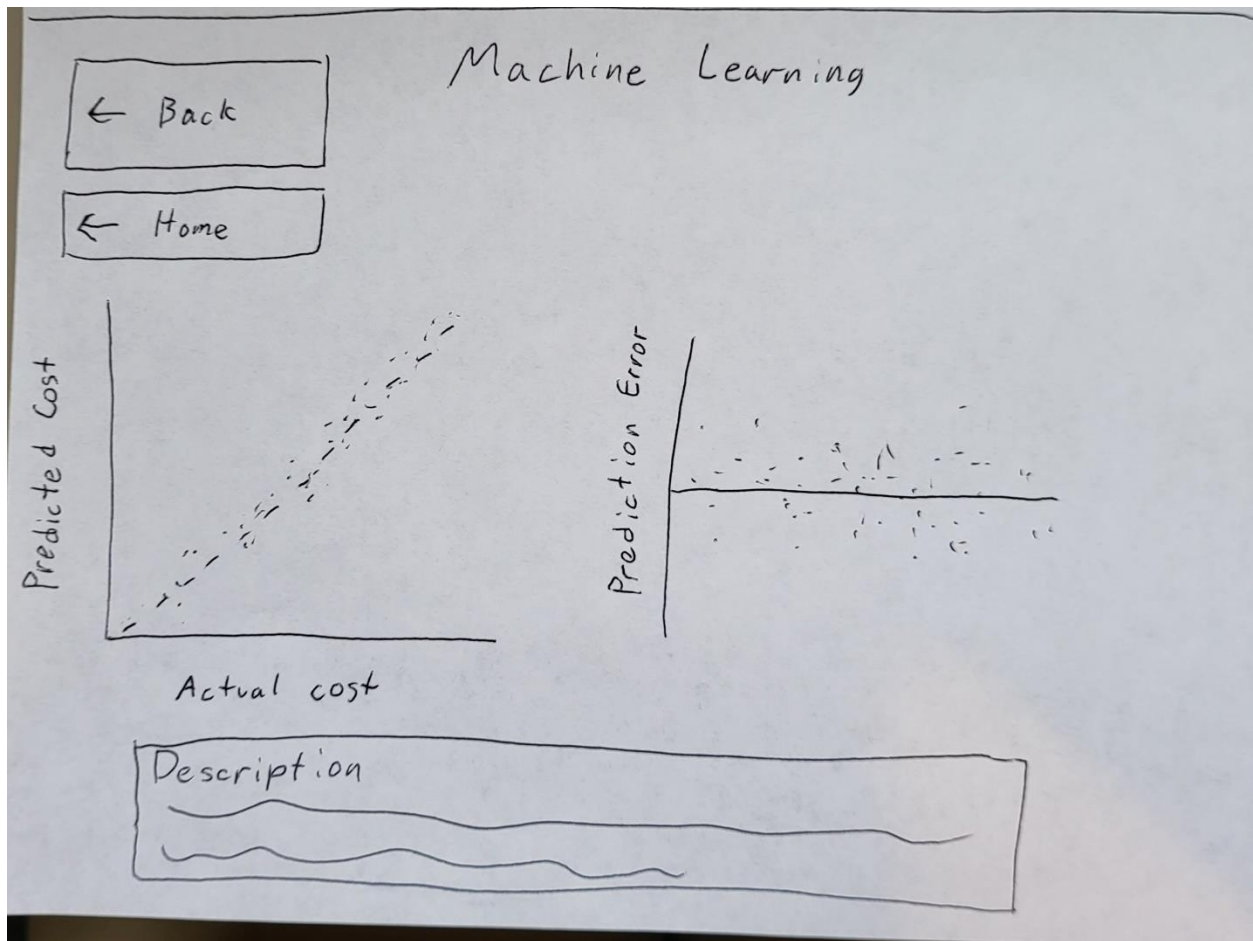 Machine Learning
← Back
← Home
Predicted Cost
Actual cost
Prediction Error
Description